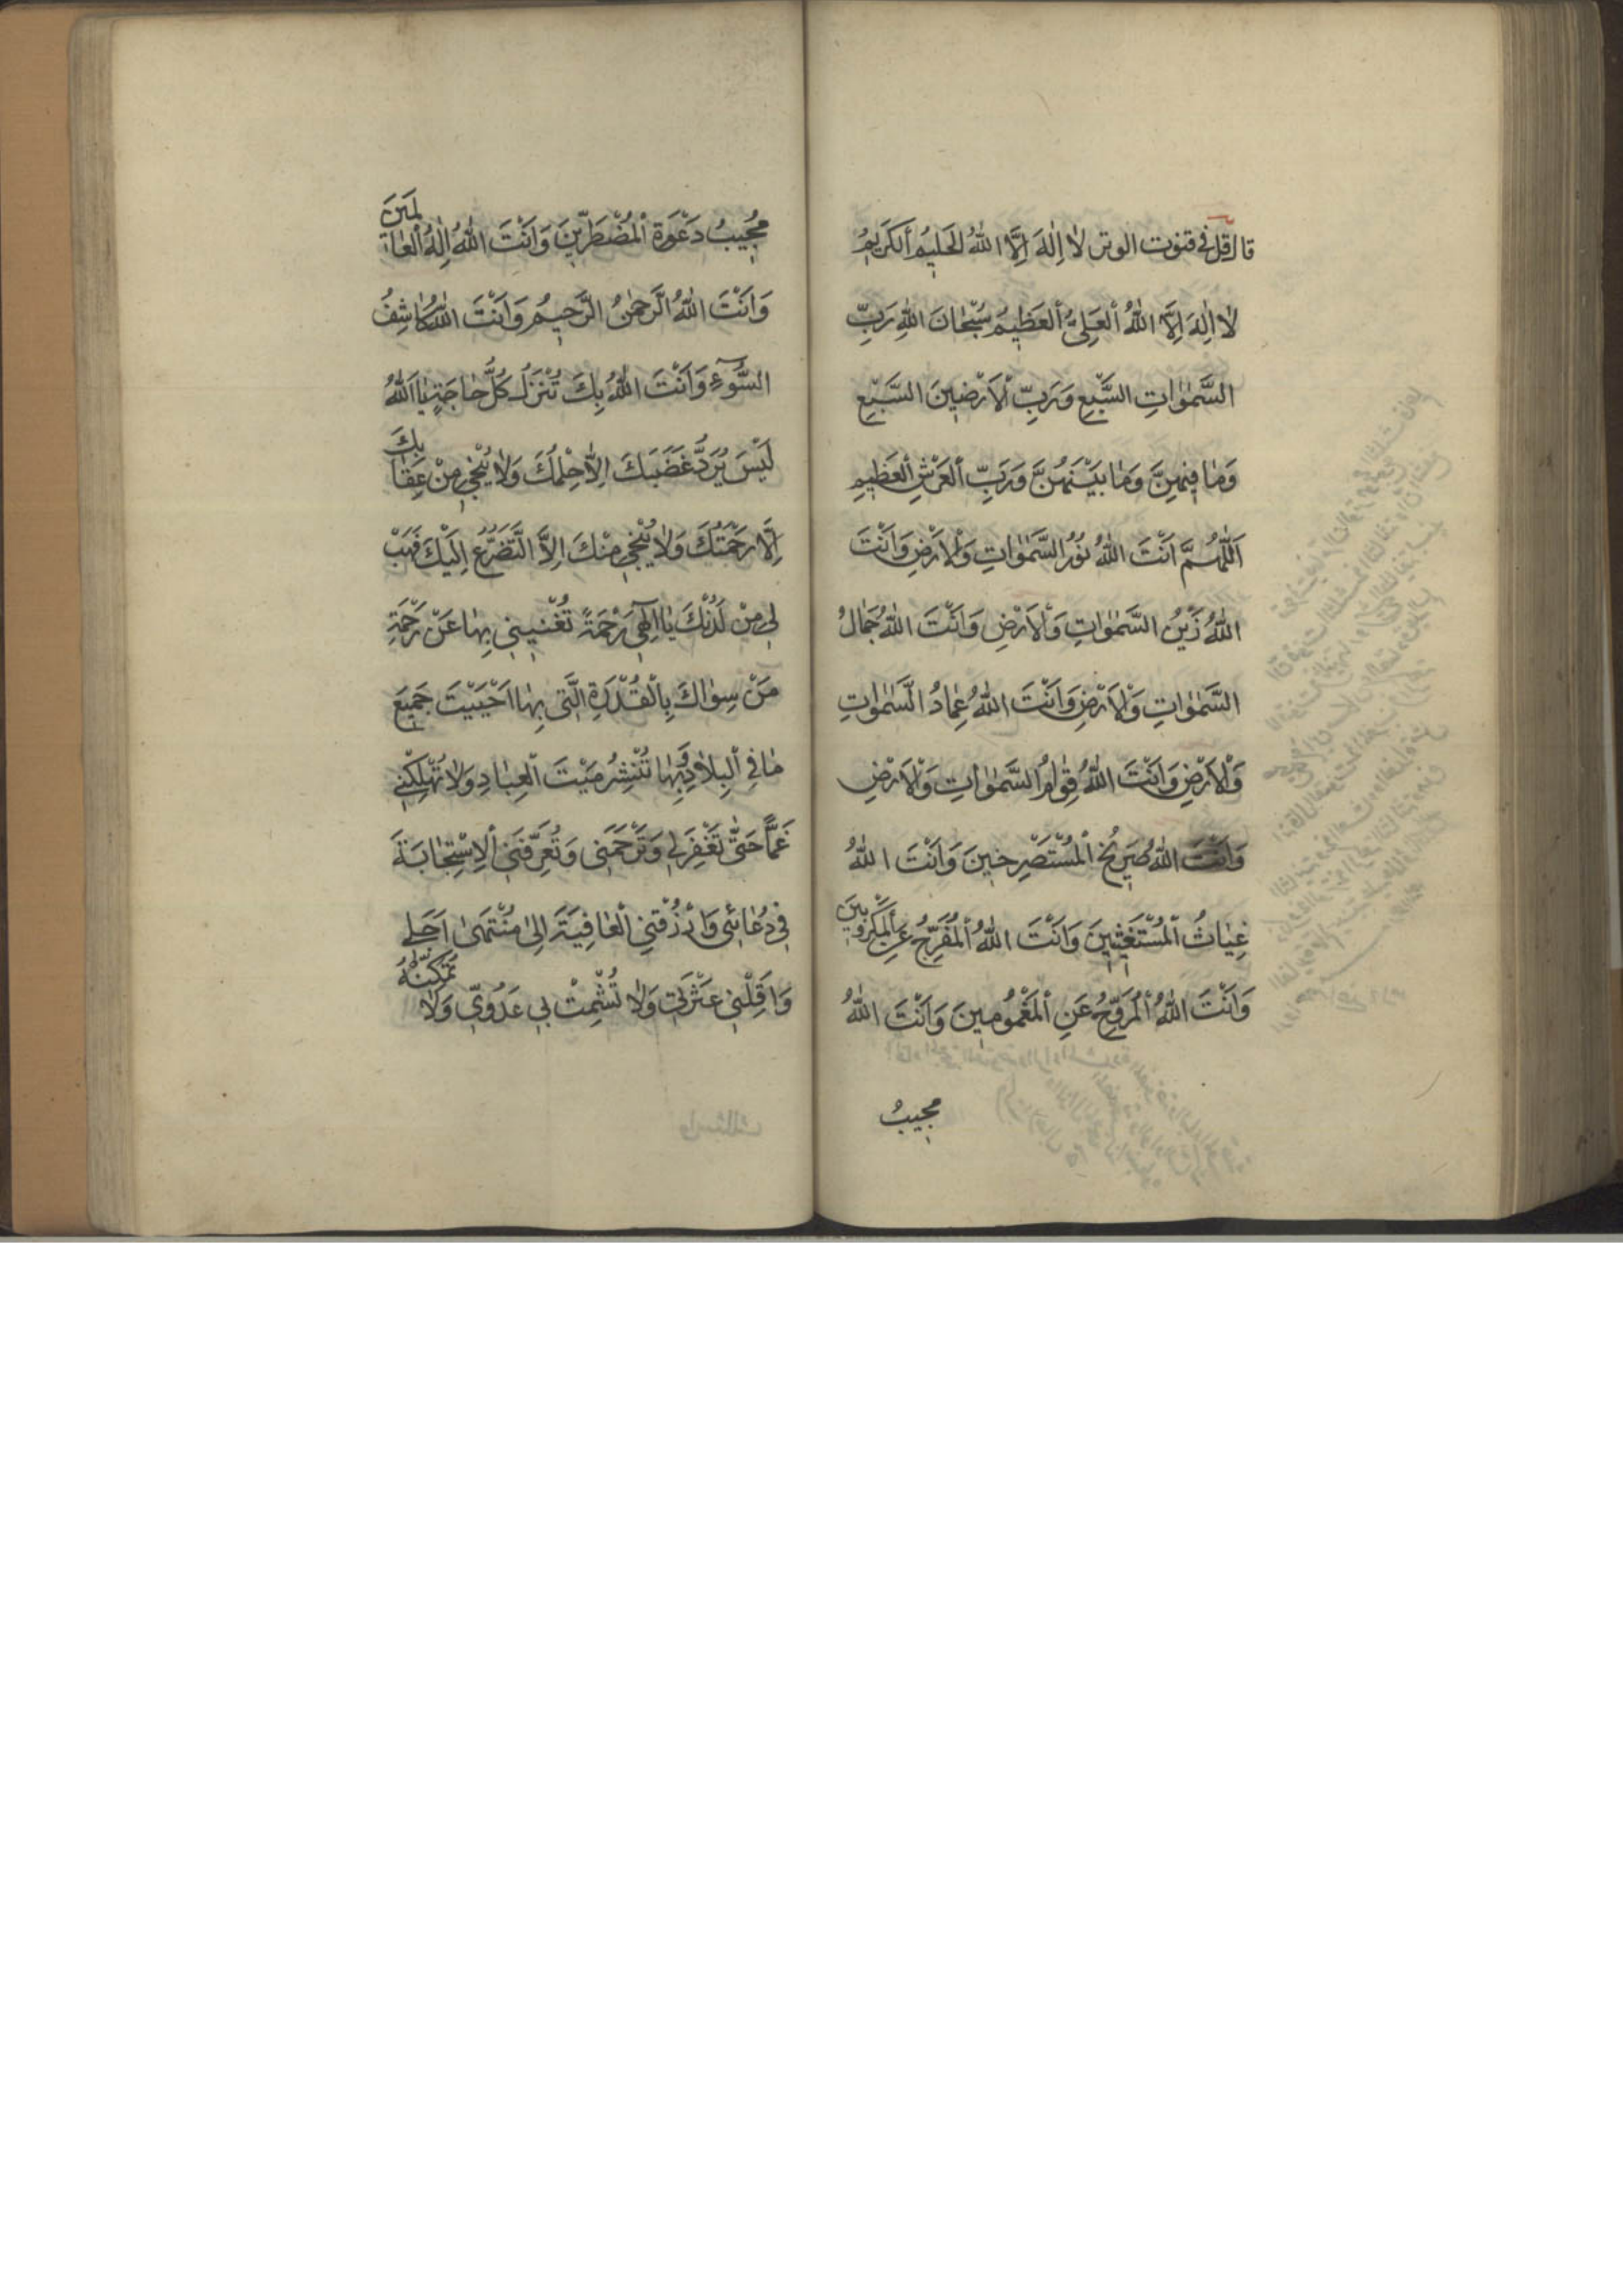 قال قل في قنوت الوتر لا اِلهَ اِلَّا اللهُ الحَليمُ اَلكَريمُ
لا اِلهَ اِلَّا اللهُ اَلعَلِيُّ اَلعَظيمُ سُبْحانَ اللهِ رَبِّ
السَّمواتِ السَّبْعِ وَرَبِّ اْلاَرَضينَ السَّبْعِ
وَما فيهِنَّ وَما بَيْنَهُنَّ وَرَبِّ اَلعَرْشِ اَلعَظيمِ
اَللّهُمَّ اَنْتَ اللهُ نُورُ السَّمواتِ وَاْلاَرْضِ وَاَنْتَ
اللهُ زَيْنُ السَّمواتِ وَاْلاَرْضِ وَاَنْتَ اللهُ جَمالُ
السَّمواتِ وَاْلاَرْضِ وَاَنْتَ اللهُ عِمادُ السَّمواتِ
وَاْلاَرْضِ وَاَنْتَ اللهُ قِوامُ السَّمواتِ وَاْلاَرْضِ
وَاَنْتَ اللهُ صَريخُ اْلمُسْتَصْرِخينَ وَاَنْتَ اللهُ
غِياثُ اْلمُسْتَغيثينَ وَاَنْتَ اللهُ اْلمُفَرِّجُ عَنِ اْلمَكْرُوبينَ
وَاَنْتَ اللهُ اْلمُرَوِّحُ عَنِ اْلمَغْمُومينَ وَاَنْتَ اللهُ
مجيبُ
مُجيبُ دَعْوَةِ اْلمُضْطَرّينَ وَاَنْتَ اللهُ اِلهُ اْلعالَمينَ
وَاَنْتَ اللهُ الرَّحمنُ الرَّحيمُ وَاَنْتَ اللهُ كاشِفُ
السُّوءِ وَاَنْتَ اللهُ بِكَ تُنْزَلُ كُلُّ حاجَةٍ يا اَللهُ
لَيْسَ يَرُدُّ غَضَبَكَ اِلاّ حِلْمُكَ وَلا يُنْجي مِنْ عِقابِكَ
اِلَّا رَحْمَتُكَ وَلا يُنْجي مِنْكَ اِلاَّ التَّضَرُّعُ اِلَيْكَ فَهَبْ
لي مِنْ لَدُنْكَ يا اِلهي رَحْمَةً تُغْنيني بِها عَنْ رَحْمَةِ
مَنْ سِواكَ بِاْلقُدْرَةِ الَّتي بِها اَحْيَيْتَ جَميعَ
ما في اْلبِلادِ وَبِها تُنْشِرُ مَيْتَ اْلعِبادِ وَلا تُهْلِكْني
غَمًّا حَتّى تَغْفِرَ لي وَتَرْحَمَني وَتُعَرِّفَني اْلاِسْتِجابَةَ
في دُعائي وَارْزُقْني اْلعافِيَةَ اِلى مُنْتَهى اَجَلي
وَاَقِلْني عَثْرَتي وَلا تُشْمِتْ بي عَدُوّي وَلا تُمَكِّنْهُ